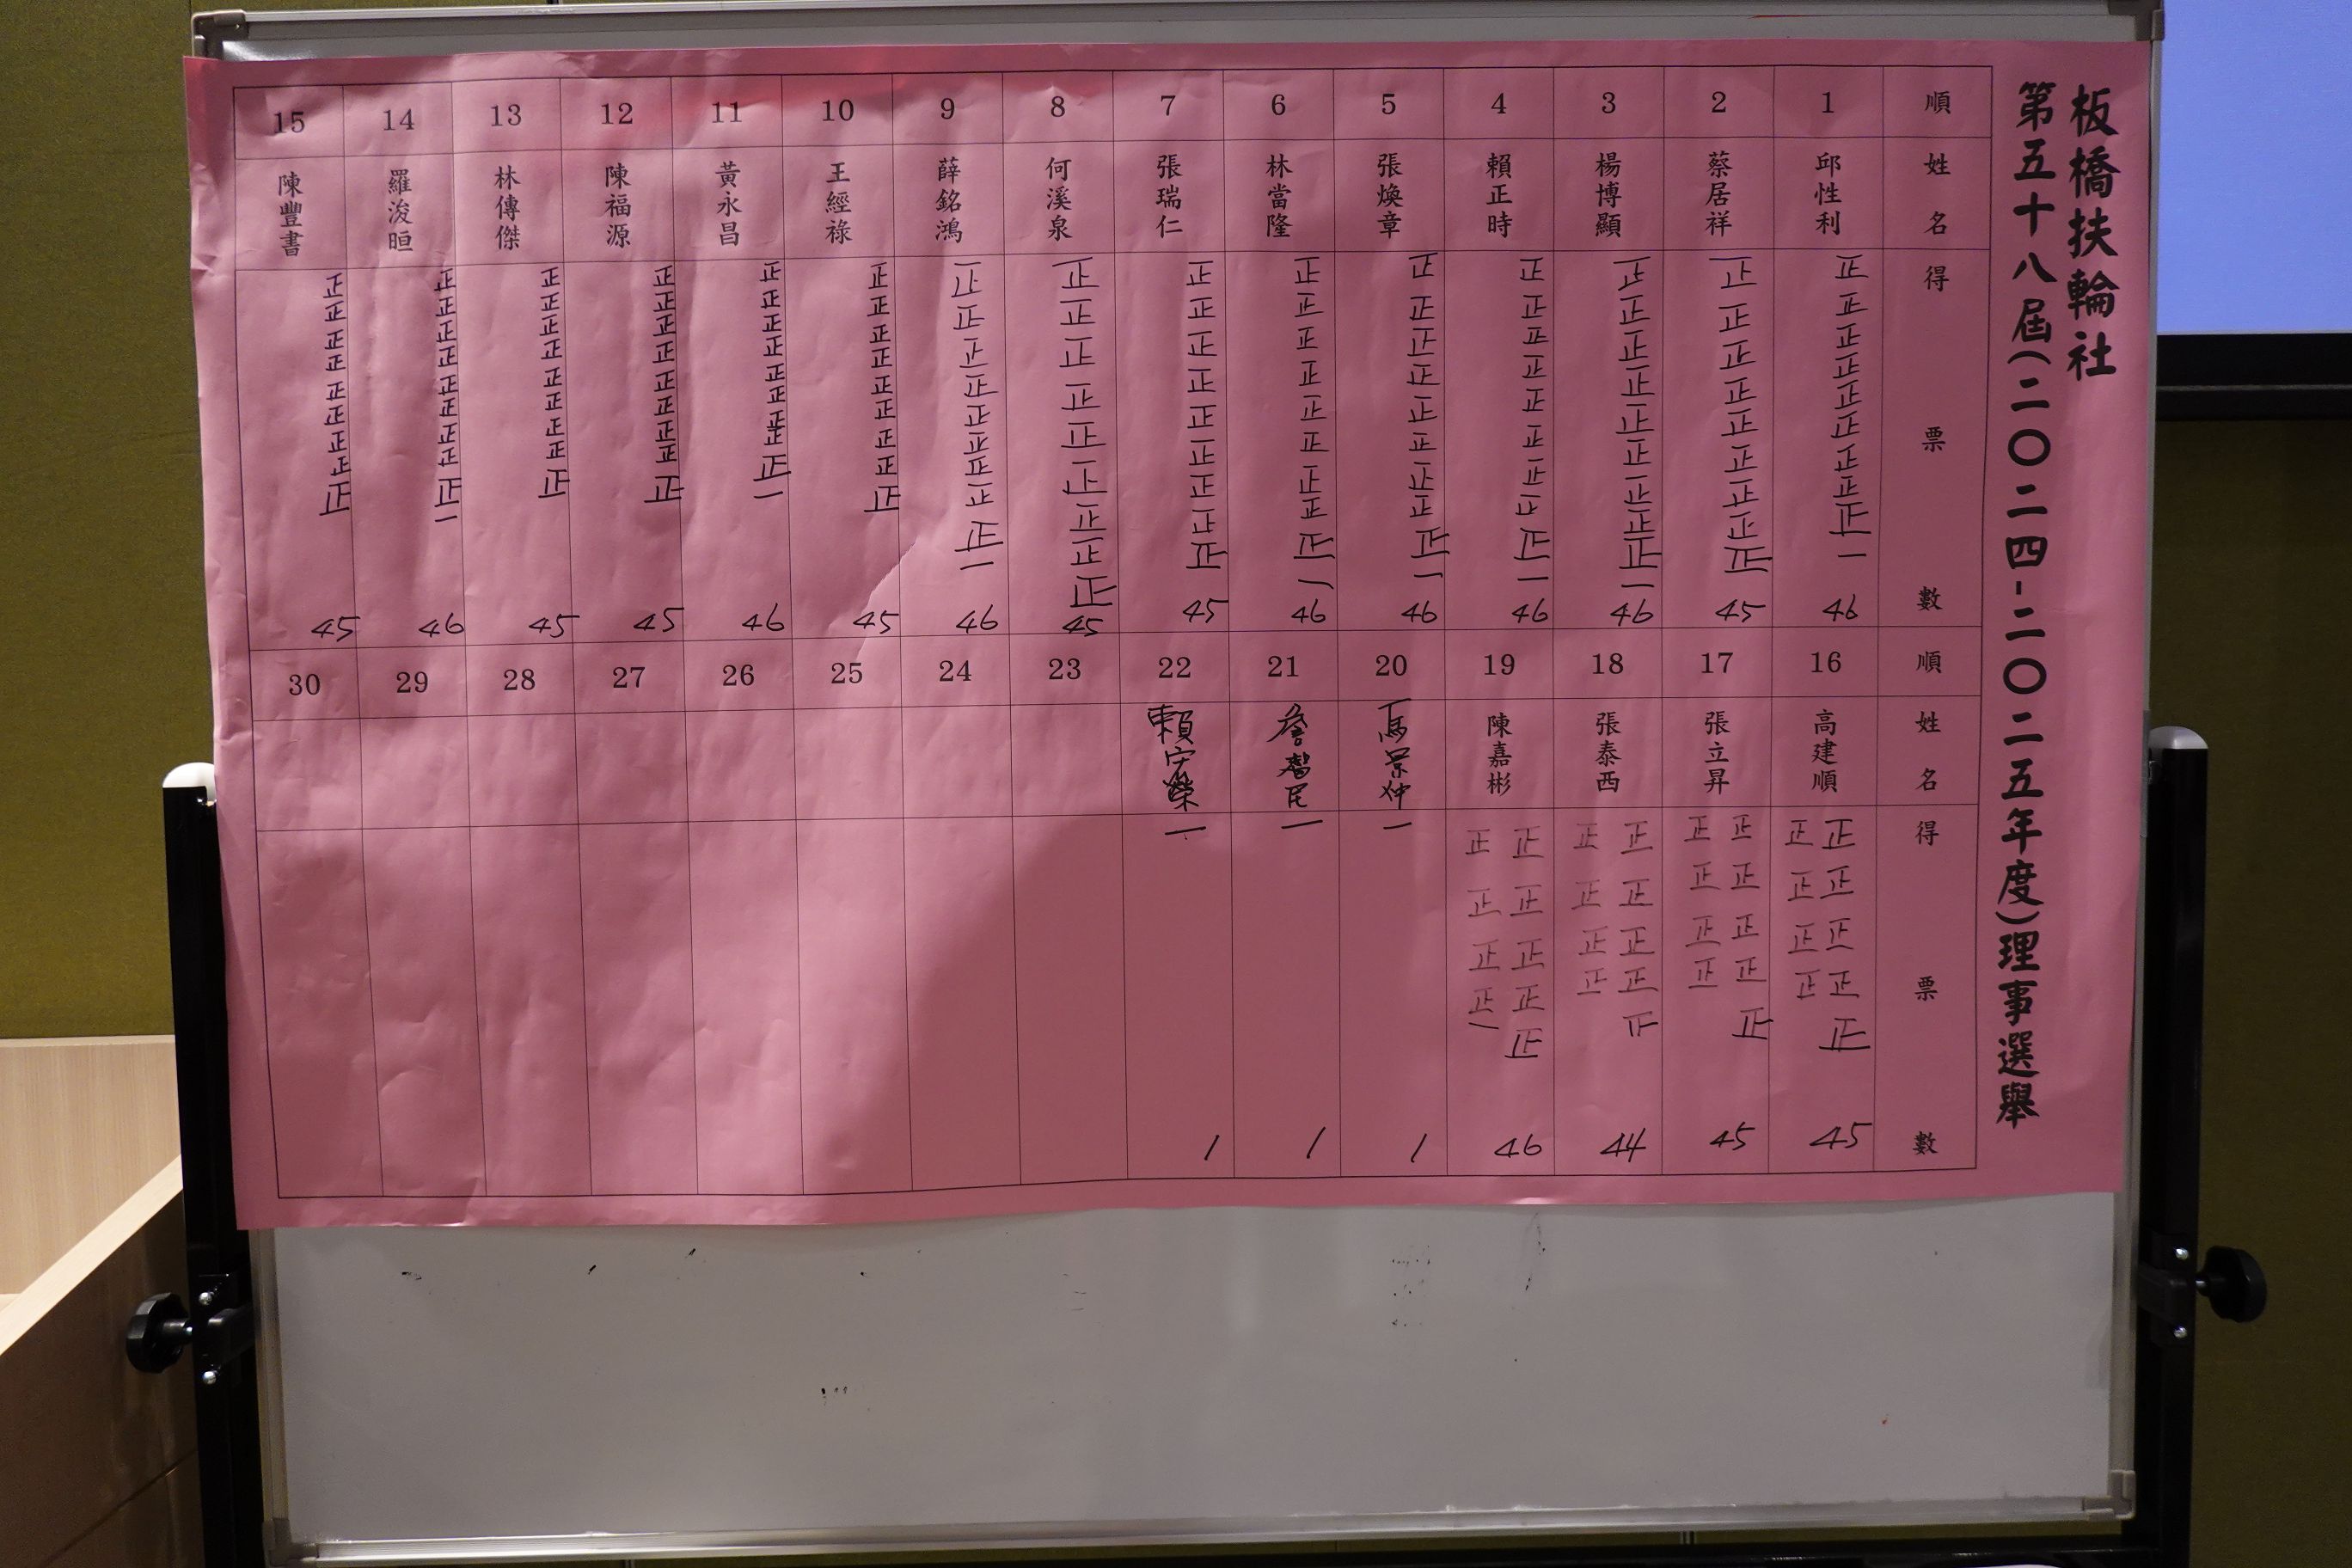 板橋扶輪社
第五十八屆(二〇二四-二〇二五年度)理事選舉
順 姓名 得票數
1 邱性利 正正正正正正正正正一 46
2 蔡居祥 正正正正正正正正正 45
3 楊博顯 正正正正正正正正正一 46
4 賴正時 正正正正正正正正正一 46
5 張煥章 正正正正正正正正正一 46
6 林當隆 正正正正正正正正正一 46
7 張瑞仁 正正正正正正正正正 45
8 何溪泉 正正正正正正正正正 45
9 薛銘鴻 正正正正正正正正正一 46
10 王經祿 正正正正正正正正正 45
11 黃永昌 正正正正正正正正正一 46
12 陳福源 正正正正正正正正正 45
13 林傳傑 正正正正正正正正正 45
14 羅浚晅 正正正正正正正正正一 46
15 陳豐書 正正正正正正正正正 45
順 姓名 得票數
16 高建順 正正正正正正正正正 45
17 張立昇 正正正正正正正正正 45
18 張泰西 正正正正正正正正 44
19 陳嘉彬 正正正正正正正正正一 46
20 景仲 一 1
21 詹智民 一 1
22 賴榮 一 1
23
24
25
26
27
28
29
30